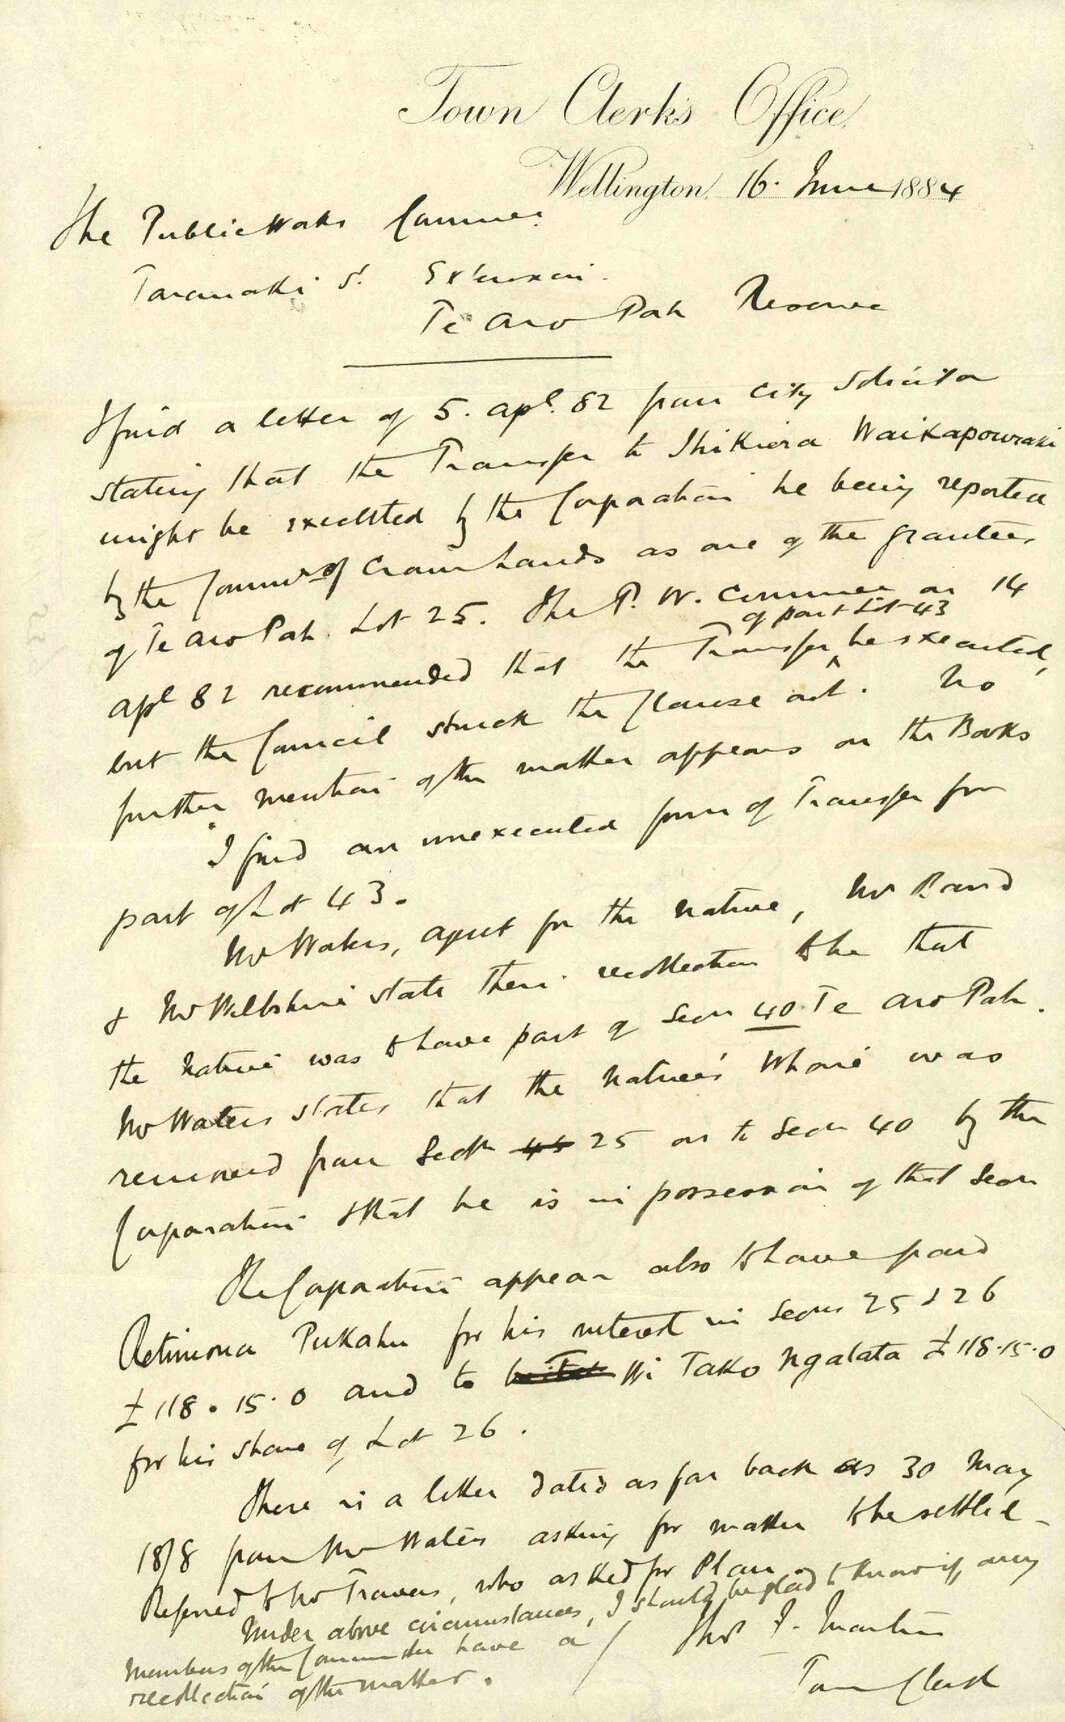 Town Clerk's Office,
Wellington, 16 June 1884
The Public Works Commee
Taranaki St. Extension
Te Aro Pah Reserve
I find a letter of 5. apl. 82 from City Solicitor
stating that the Transfer to Waikapowraki
might be executed by the Corporation he being reported
by the Commrs of Crown Lands as one of the grantees
of Te Aro Pah. Lot 25. The P. W. Commee on 14
of part Lot 43
apl 82 recommended that the Transfer ^ be executed,
but the Council struck the clause out. No
further mention of the matter appears on the Books
I find an unexecuted form of Transfer for
part of Lot 43.
Mr Waters, agent for the native, Mr Baird
& Mr Wiltshire state their recollection to be that
the native was to have part of Secn 40 Te Aro Pah.
Mr Waters states that the native's Whare was
removed from Sectn 25 on to Secn 40 by the
Corporation & that he is in possession of that Secn
The Corporation appear also to have paid
Retimona Pukahu for his interest in Secns 25 & 26
£118.15.0 and to Wi Tako Ngatata £118.15.0
for his share of Lot 26.
There is a letter dated as far back as 30 May
1878 from Mr Waters asking for matter to be settled -
Referred to Mr Travers, who asked for Plan
Under above circumstances, I should be glad to know if any
members of the Committee have a
recollection of the matter.
Thos F. Martin
Town Clerk